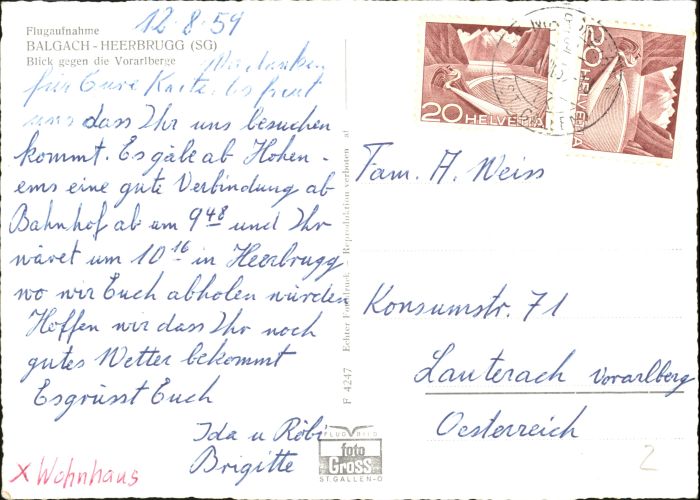 12.8.59
Flugaufnahme
BALGACH - HEERBRUGG (SG)
Blick gegen die Vorarlberge
Wir danken
für Eure Karte. Es freut
uns dass Ihr uns besuchen
kommt. Es gäbe ab Hohen-
ems eine gute Verbindung ab
Bahnhof ab am 9 48 und Ihr
wäret um 10 16 in Heerbrugg
wo wir Euch abholen würden
Hoffen wir dass Ihr noch
gutes Wetter bekommt
Es grüsst Euch
Ida u Röbi
Brigitte
x Wohnhaus
F 4247 Echter Fotodruck Reproduktion verboten
FLUGBILD
foto
Gross
ST. GALLEN-O
20 HELVETIA
20 HELVETIA
Fam. A. Weiss
Konsumstr. 71
Lauterach Vorarlberg
Oesterreich
2